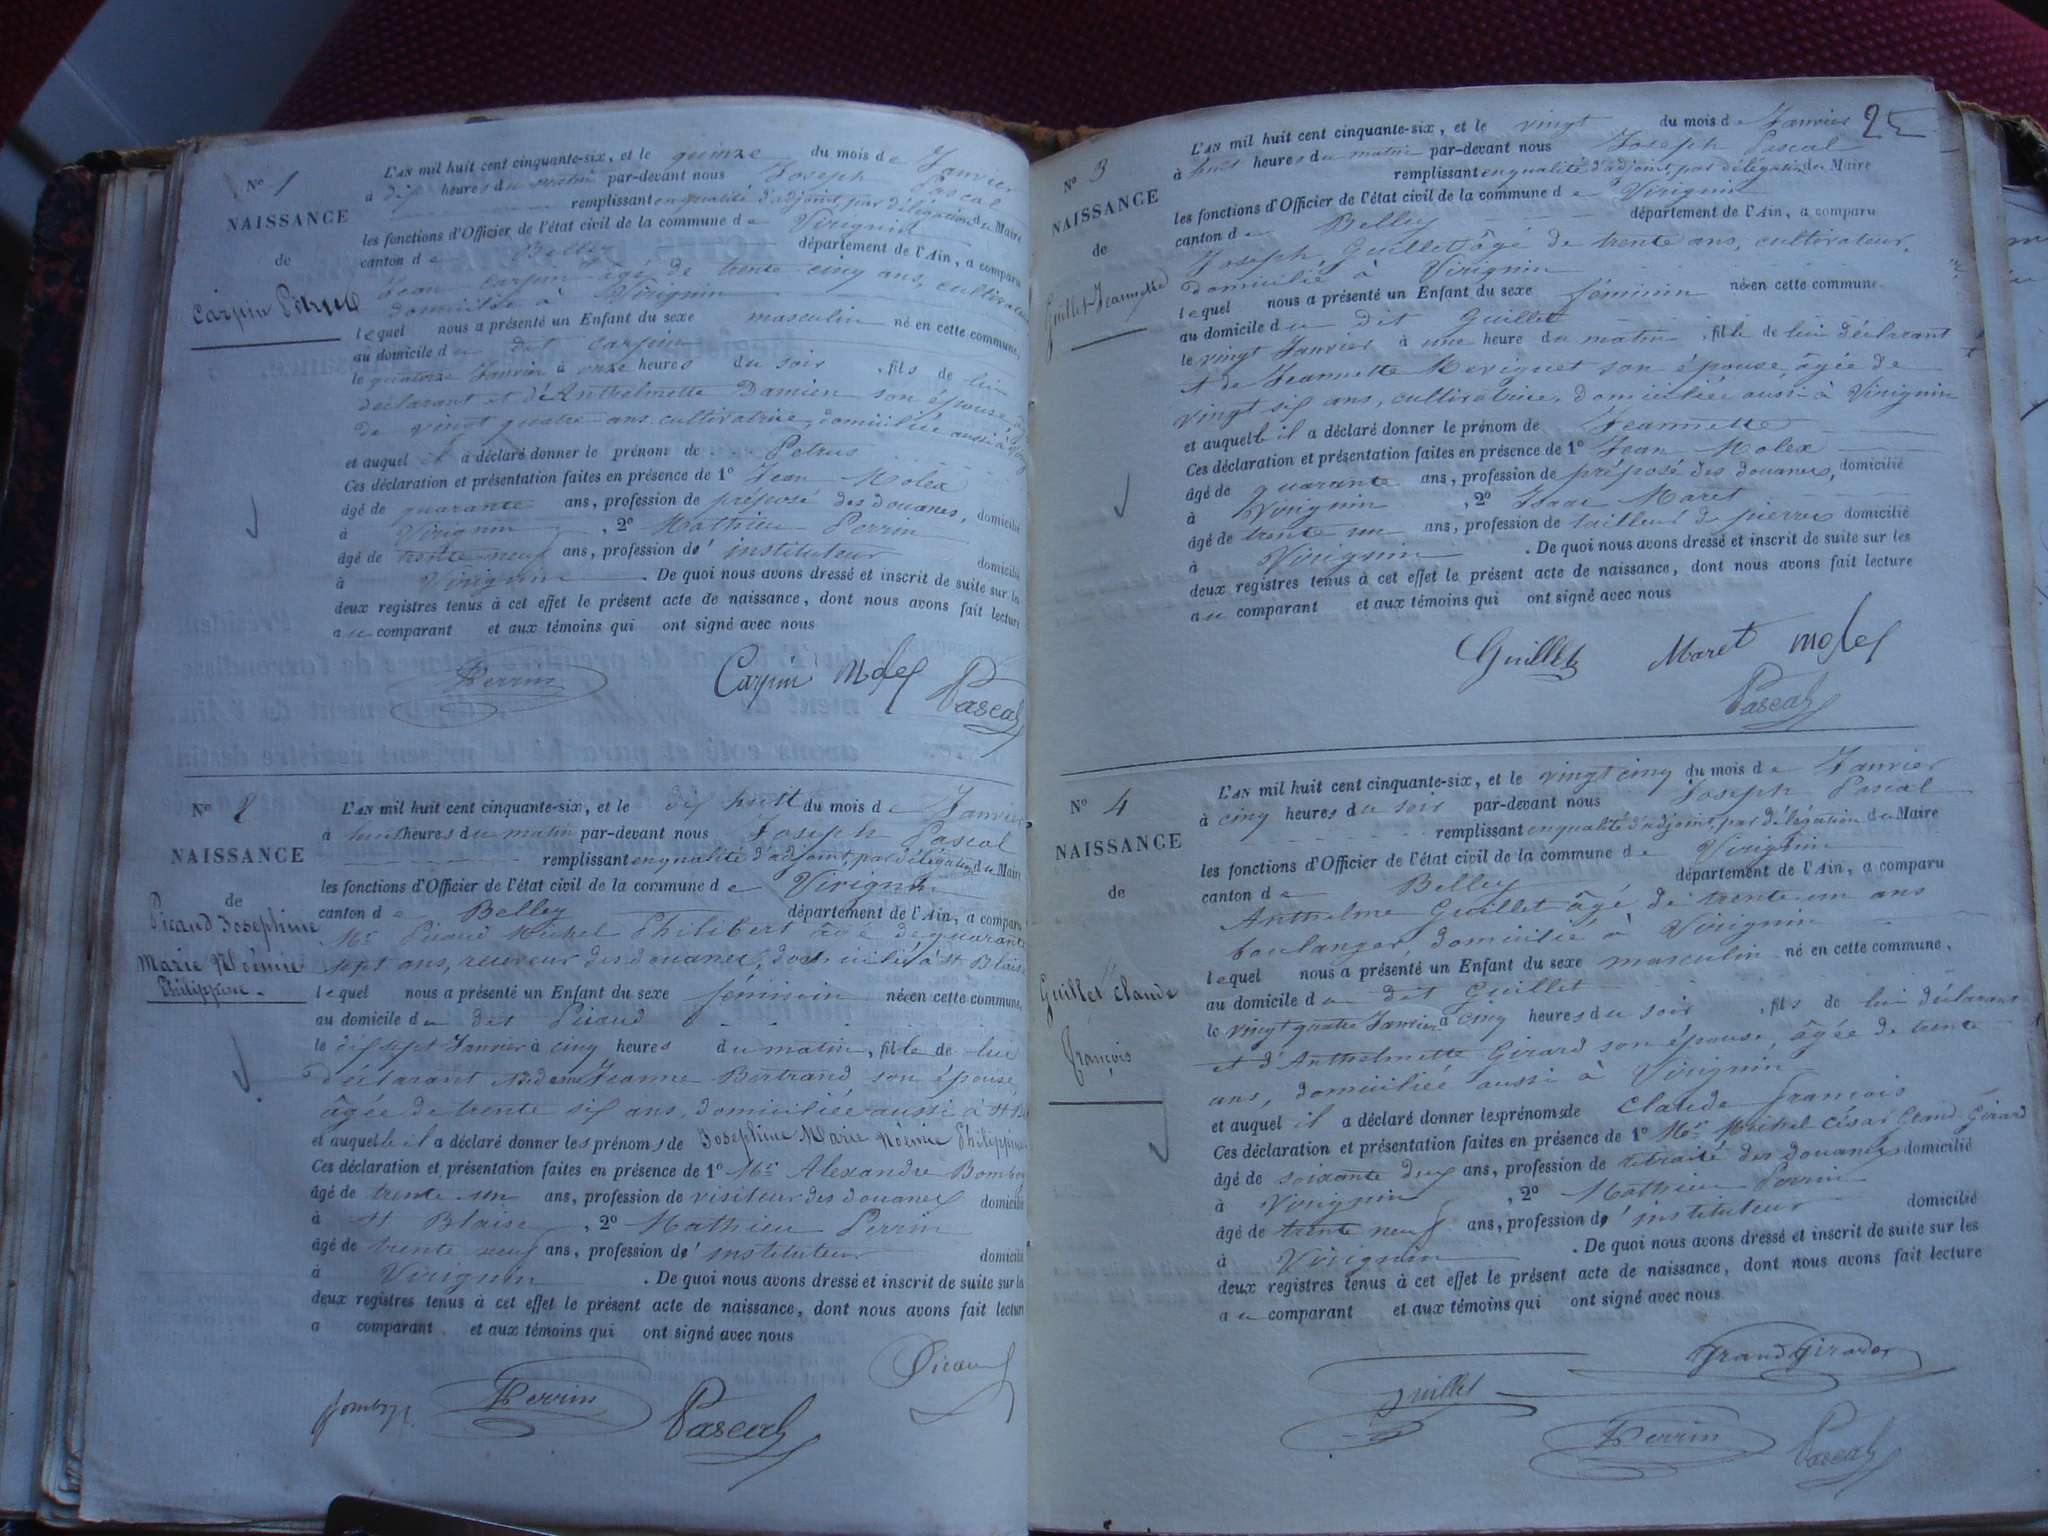 N° 1
NAISSANCE
de
Carpin Pétrus
L'AN mil huit cent cinquante-six, et le quinze du mois de Janvier
à dix heures du matin par-devant nous Joseph Pascal
remplissant en qualité d'adjoint, par délégation du Maire
les fonctions d'Officier de l'état civil de la commune de Virignin
canton de Belley département de l'Ain, a comparu
Jean Carpin âgé de trente cinq ans, cultivateur
domicilié à Virignin
lequel nous a présenté un Enfant du sexe masculin né en cette commune,
au domicile du dit Carpin
le quatorze Janvier à onze heures du soir, fils de lui
déclarant et d'Anthelmette Damien son épouse, âgée
de vingt quatre ans cultivatrice, domiciliée aussi à
et auquel il a déclaré donner le prénom de Petrus
Ces déclaration et présentation faites en présence de 1° Jean Molex
âgé de quarante ans, profession de préposé des douanes, domicilié
à Virignin, 2° Mathieu Perrin
âgé de trente neuf ans, profession d'instituteur domicilié
à Virignin. De quoi nous avons dressé et inscrit de suite sur les
deux registres tenus à cet effet le présent acte de naissance, dont nous avons fait lecture
au comparant et aux témoins qui ont signé avec nous
Perrin Carpin Molex Pascal
N° 2
NAISSANCE
de
Picaud Josephine
Marie Noémie
Philippine
L'AN mil huit cent cinquante-six, et le dix huit du mois de Janvier
à huit heures du matin par-devant nous Joseph Pascal
remplissant en qualité d'adjoint, par délégation du Maire
les fonctions d'Officier de l'état civil de la commune de Virignin
canton de Belley département de l'Ain, a comparu
Mr Picaud Michel Philibert âgé de quarante
sept ans, receveur des douanes, domicilié à St Blaise
lequel nous a présenté un Enfant du sexe féminin née en cette commune,
au domicile du dit Picaud
le dix sept Janvier à cinq heures du matin, fille de lui
déclarant et de Jeanne Bertrand son épouse
âgée de trente six ans, domiciliée aussi à St
et auquelle il a déclaré donner les prénoms de Josephine Marie Noémie Philippine
Ces déclaration et présentation faites en présence de 1° Mr Alexandre
âgé de trente un ans, profession de visiteur des douanes domicilié
à St Blaise, 2° Mathieu Perrin
âgé de trente neuf ans, profession d'instituteur domicilié
à Virignin. De quoi nous avons dressé et inscrit de suite sur les
deux registres tenus à cet effet le présent acte de naissance, dont nous avons fait lecture
a comparant et aux témoins qui ont signé avec nous
Picaud
Perrin Pascal
25
N° 3
NAISSANCE
de
Guillet Jeannette
L'AN mil huit cent cinquante-six, et le vingt du mois de Janvier
à huit heures du matin par-devant nous Joseph Pascal
remplissant en qualité d'adjoint, par délégation du Maire
les fonctions d'Officier de l'état civil de la commune de Virignin
canton de Belley département de l'Ain, a comparu
Joseph Guillet âgé de trente ans, cultivateur,
domicilié à Virignin
lequel nous a présenté un Enfant du sexe féminin née en cette commune
au domicile du dit Guillet
le vingt Janvier à une heure du matin, fille de lui déclarant
et de Jeannette son épouse, âgée de
vingt six ans, cultivatrice, domiciliée aussi à Virignin
et auquelle il a déclaré donner le prénom de Jeannette
Ces déclaration et présentation faites en présence de 1° Jean Molex
âgé de quarante ans, profession de préposé des douanes, domicilié
à Virignin, 2° Isaac Maret
âgé de trente un ans, profession de tailleur de pierres domicilié
à Virignin. De quoi nous avons dressé et inscrit de suite sur les
deux registres tenus à cet effet le présent acte de naissance, dont nous avons fait lecture
au comparant et aux témoins qui ont signé avec nous
Guillet Maret Molex
Pascal
N° 4
NAISSANCE
de
Guillet Claude
François
L'AN mil huit cent cinquante-six, et le vingt cinq du mois de Janvier
à cinq heures du soir par-devant nous Joseph Pascal
remplissant en qualité d'adjoint, par délégation du Maire
les fonctions d'Officier de l'état civil de la commune de Virignin
canton de Belley département de l'Ain, a comparu
Anthelme Guillet âgé de trente un ans
boulanger, domicilié à Virignin
lequel nous a présenté un Enfant du sexe masculin né en cette commune,
au domicile du dit Guillet
le vingt quatre Janvier à cinq heures du soir, fils de lui déclarant
et d'Anthelmette Girard son épouse, âgée de trente
ans, domiciliée aussi à Virignin
et auquel il a déclaré donner les prénoms de Claude François
Ces déclaration et présentation faites en présence de 1° Mr Michel César Grand Girard
âgé de soixante deux ans, profession de retraité des douanes domicilié
à Virignin, 2° Mathieu Perrin
âgé de trente neuf ans, profession d'instituteur domicilié
à Virignin. De quoi nous avons dressé et inscrit de suite sur les
deux registres tenus à cet effet le présent acte de naissance, dont nous avons fait lecture
au comparant et aux témoins qui ont signé avec nous
Guillet
Perrin Pascal